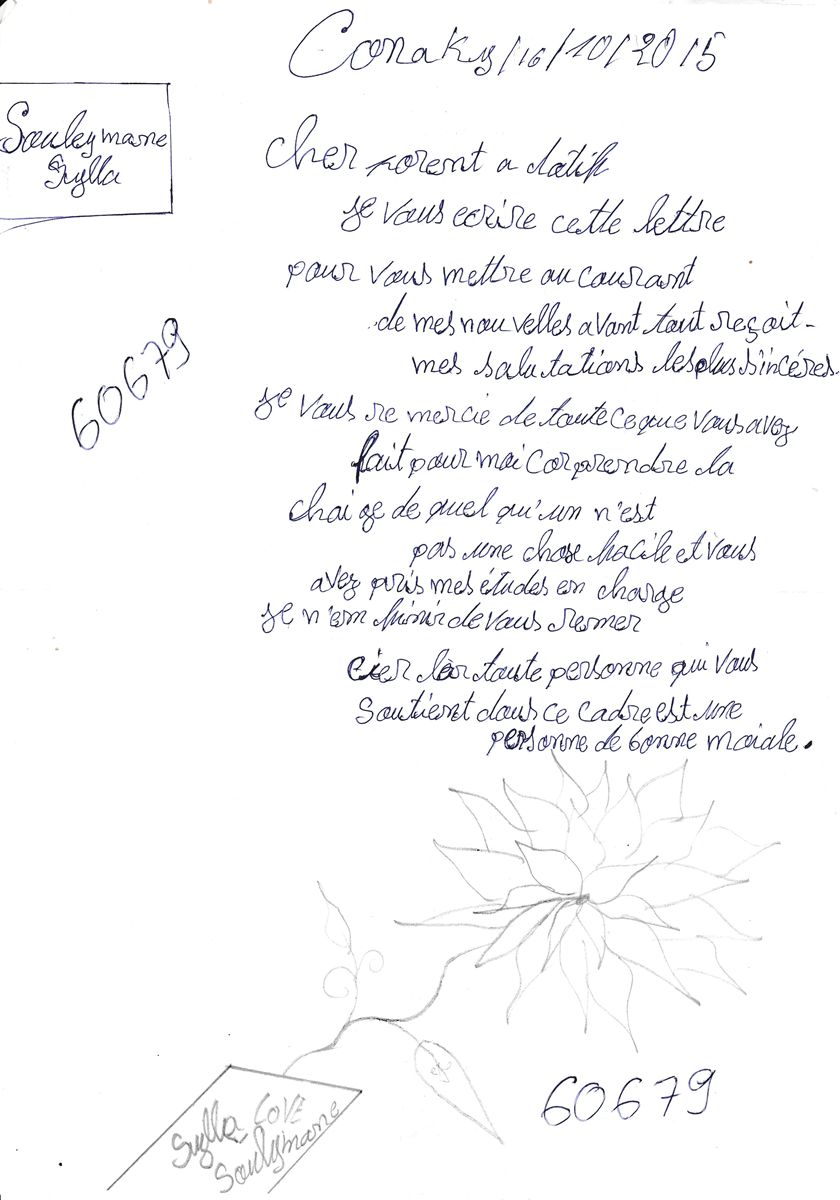 Conaky/16/10/2015
Souleymane
Sylla
cher parent a datif
je vous ecrire cette lettre
pour vous mettre au courant
de mes nouvelles avant tout reçoit-
mes salutations les plus sincéres.
60679
je vous re mercie de toute ce que vous avez
fait pour moi car prendre la
chaige de quel qu'un n'est
pas une chose facile et vous
avez pris mes études en charge
je n'em finir de vous remer
cier car toute personne qui vous
soutient dans ce cadre est une
personne de bonne moiale.
60679
Sylla LOVE
Soulymane